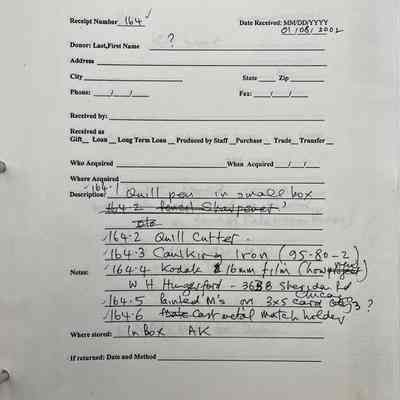 Receipt Number 164 Date Received: MM/DD/YYYY
01/08/2002
Donor: Last,First Name ?
Address
City State Zip
Phone: / / Fax: / /
Received by:
Received as
Gift Loan Long Term Loan Produced by Staff Purchase Trade Transfer
Who Acquired When Acquired / /
Where Acquired
Description: 164.1 Quill pen in small box
164.2 Pencil Sharpener
164.2 Quill Cutter.
164.3 Caulking Iron (95-80-2)
Notes: 164.4 Kodak 16mm film (how project)
W H Hungerford - 3638 Sheridan Rd
Chicago
164.5 Painted M's on 3x5 card 3?
164.6 Cast metal match holder
Where stored: In Box AK
If returned: Date and Method